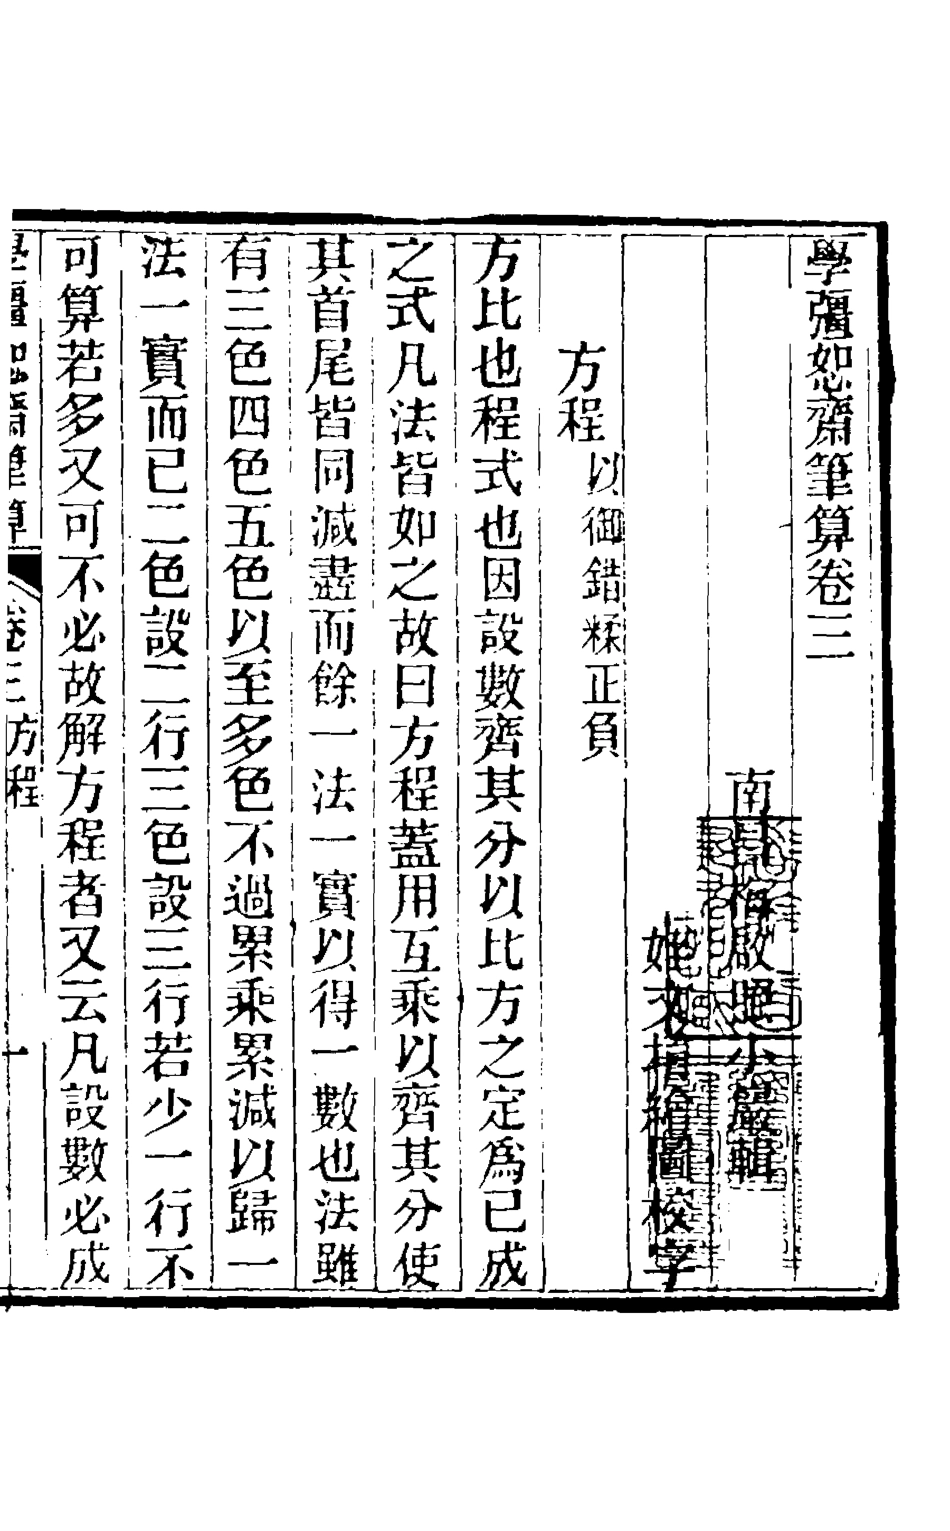 學彊恕齋筆算卷三
南昌梅啟照小巖輯
姪文堉繪圖校字
方程以御錯糅正負
方比也程式也因設數齊其分以比方之定為已成
之式凡法皆如之故曰方程蓋用互乘以齊其分使
其首尾皆同減盡而餘一法一實以得一數也法雖
有三色四色五色以至多色不過累乘累減以歸一
法一實而已二色設二行三色設三行若少一行不
可算若多又可不必故解方程者又云凡設數必成
學彊恕齋筆算 卷三 方程 一